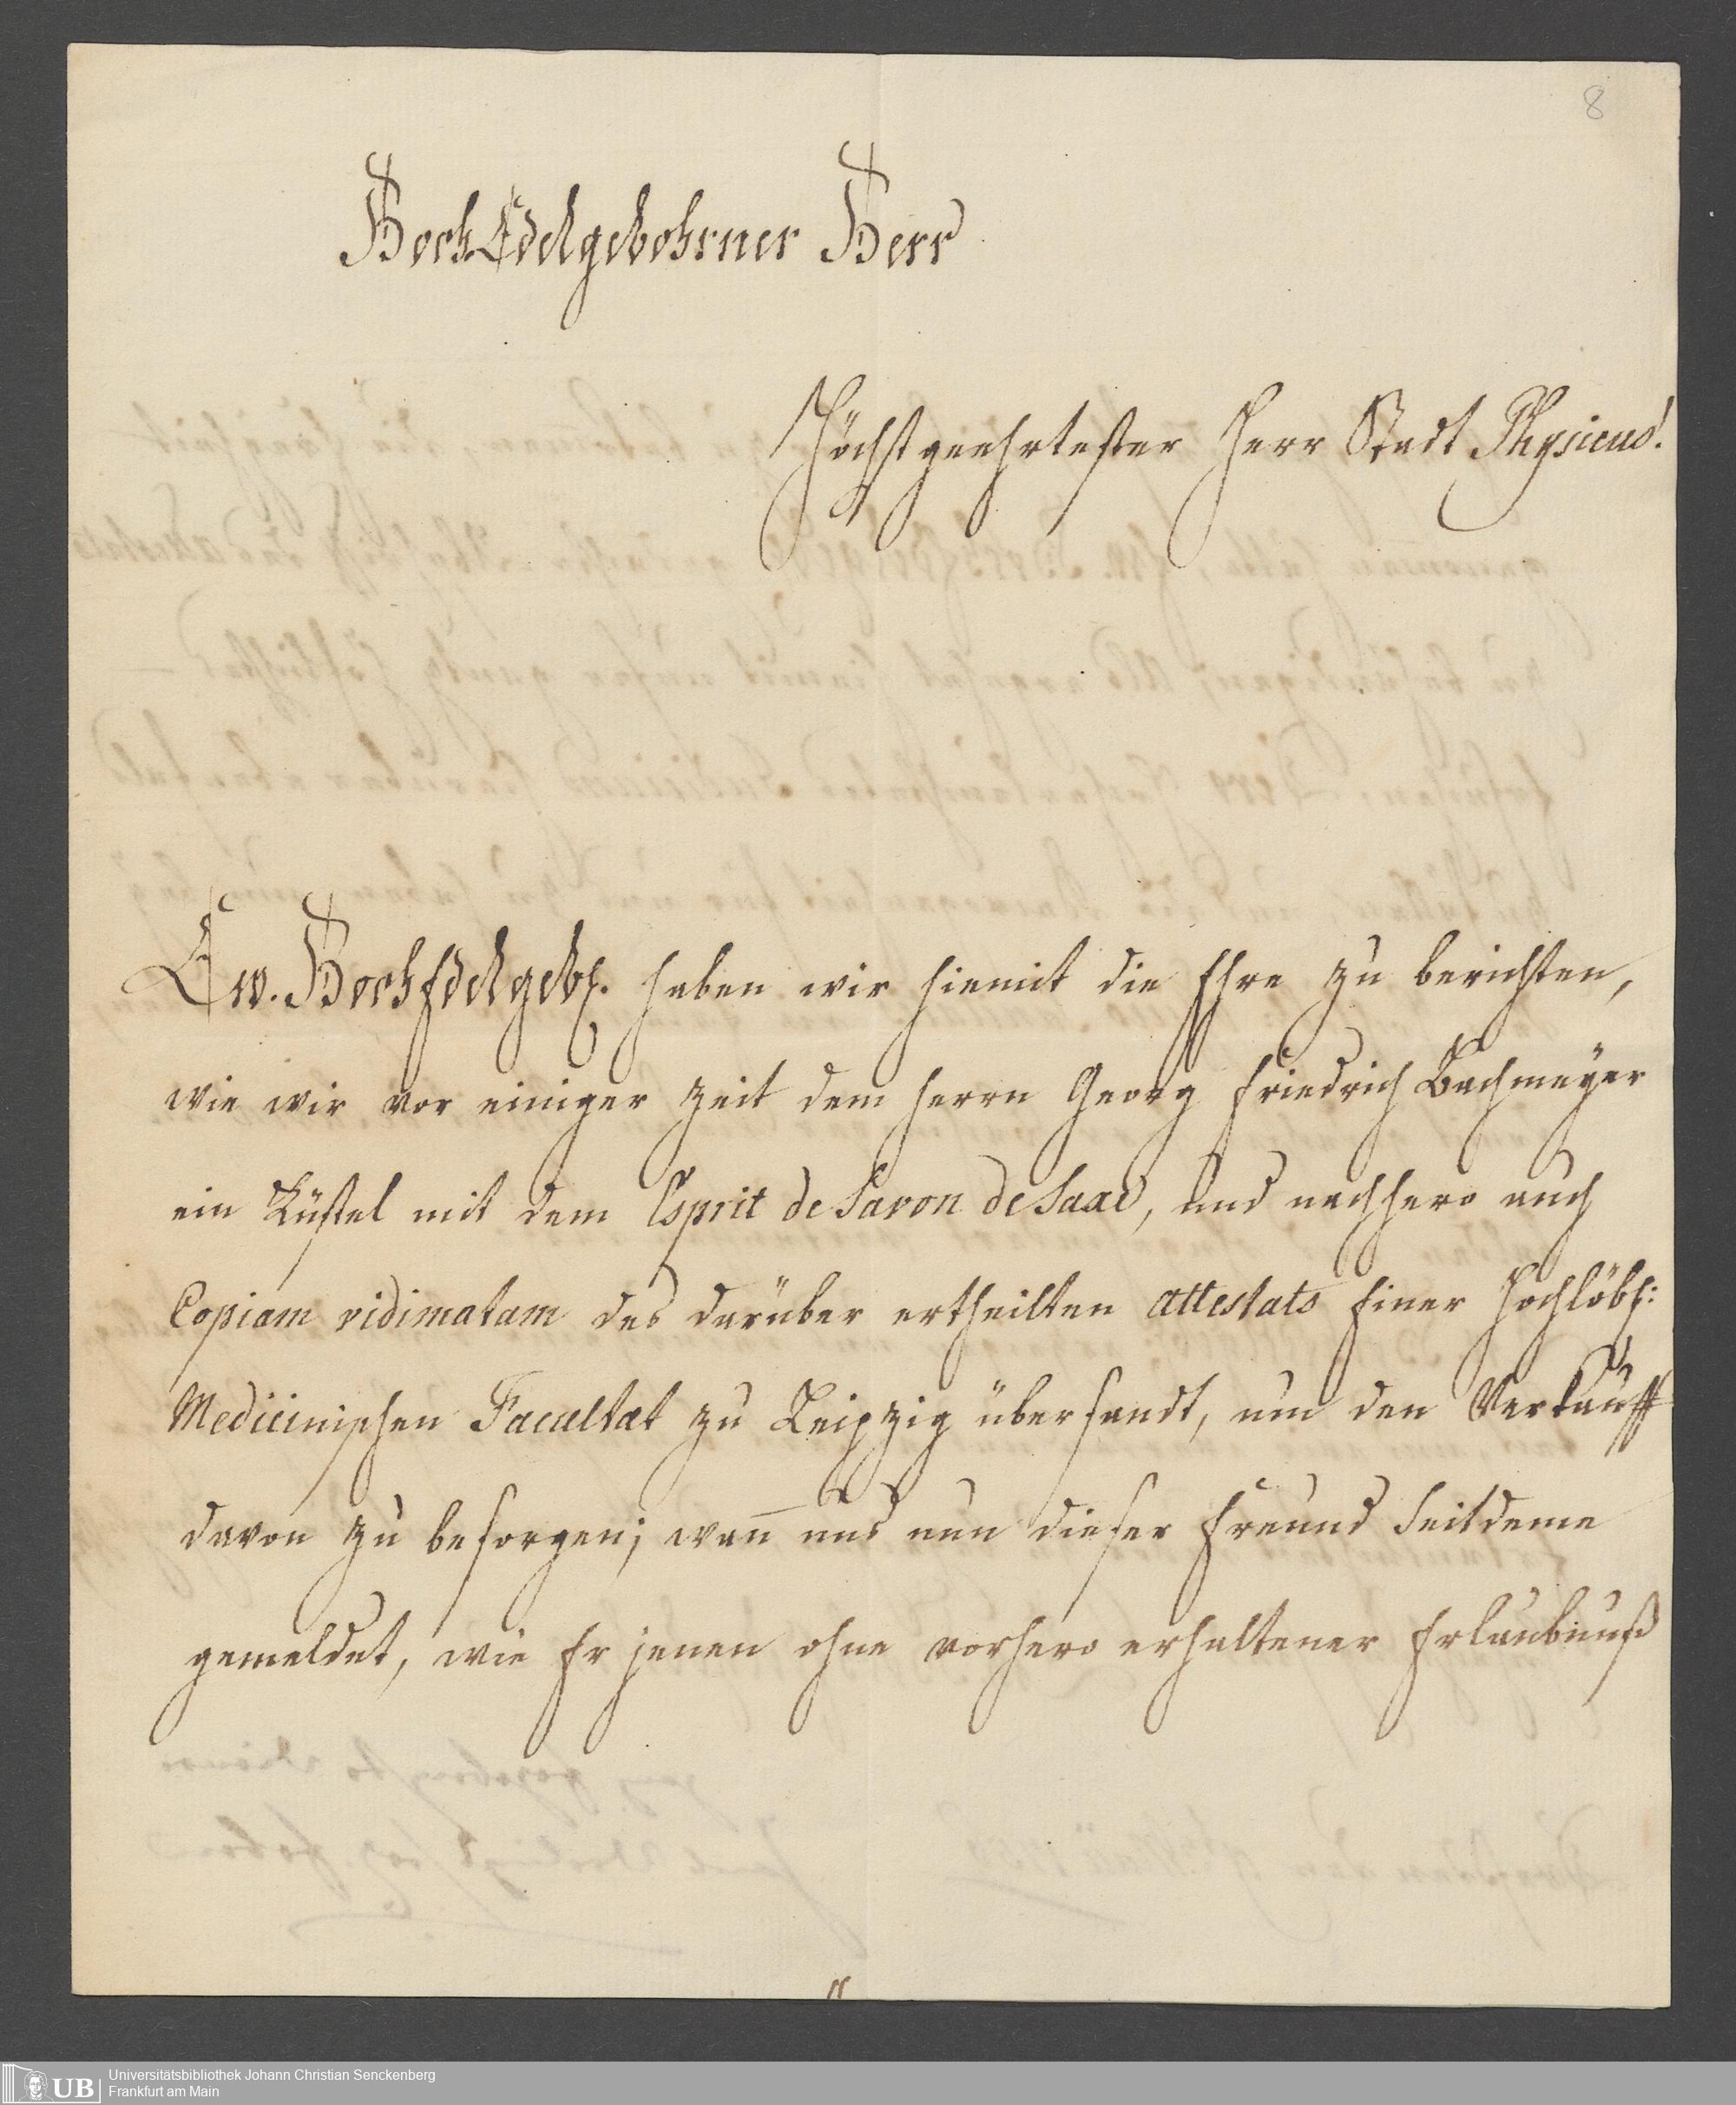 8
HochEdelgebohrner Herr
Höchstgeehrtester Herr Stadt Physicus!
Ew. HochEdelgebh. haben wir hiemit die Ehre zu berichten,
wie wir vor einiger Zeit dem Herrn Georg Friedrich Bachmeÿer
ein Küstel mit dem Esprit de Savon de Saxe, und nachhero auch
Copiam vidimatam des darüber ertheilten attestats Einer Hochlöbl:
Medicinischen Facultæt zu Leipzig übersandt, um den Verkauff
davon zu besorgen; wan̄ uns nun dieser Freund seitdeme
gemeldet, wie Er jenen ohne vorhero erhaltener Erlaubnuß
UB
Universitätsbibliothek Johann Christian Senckenberg
Frankfurt am Main